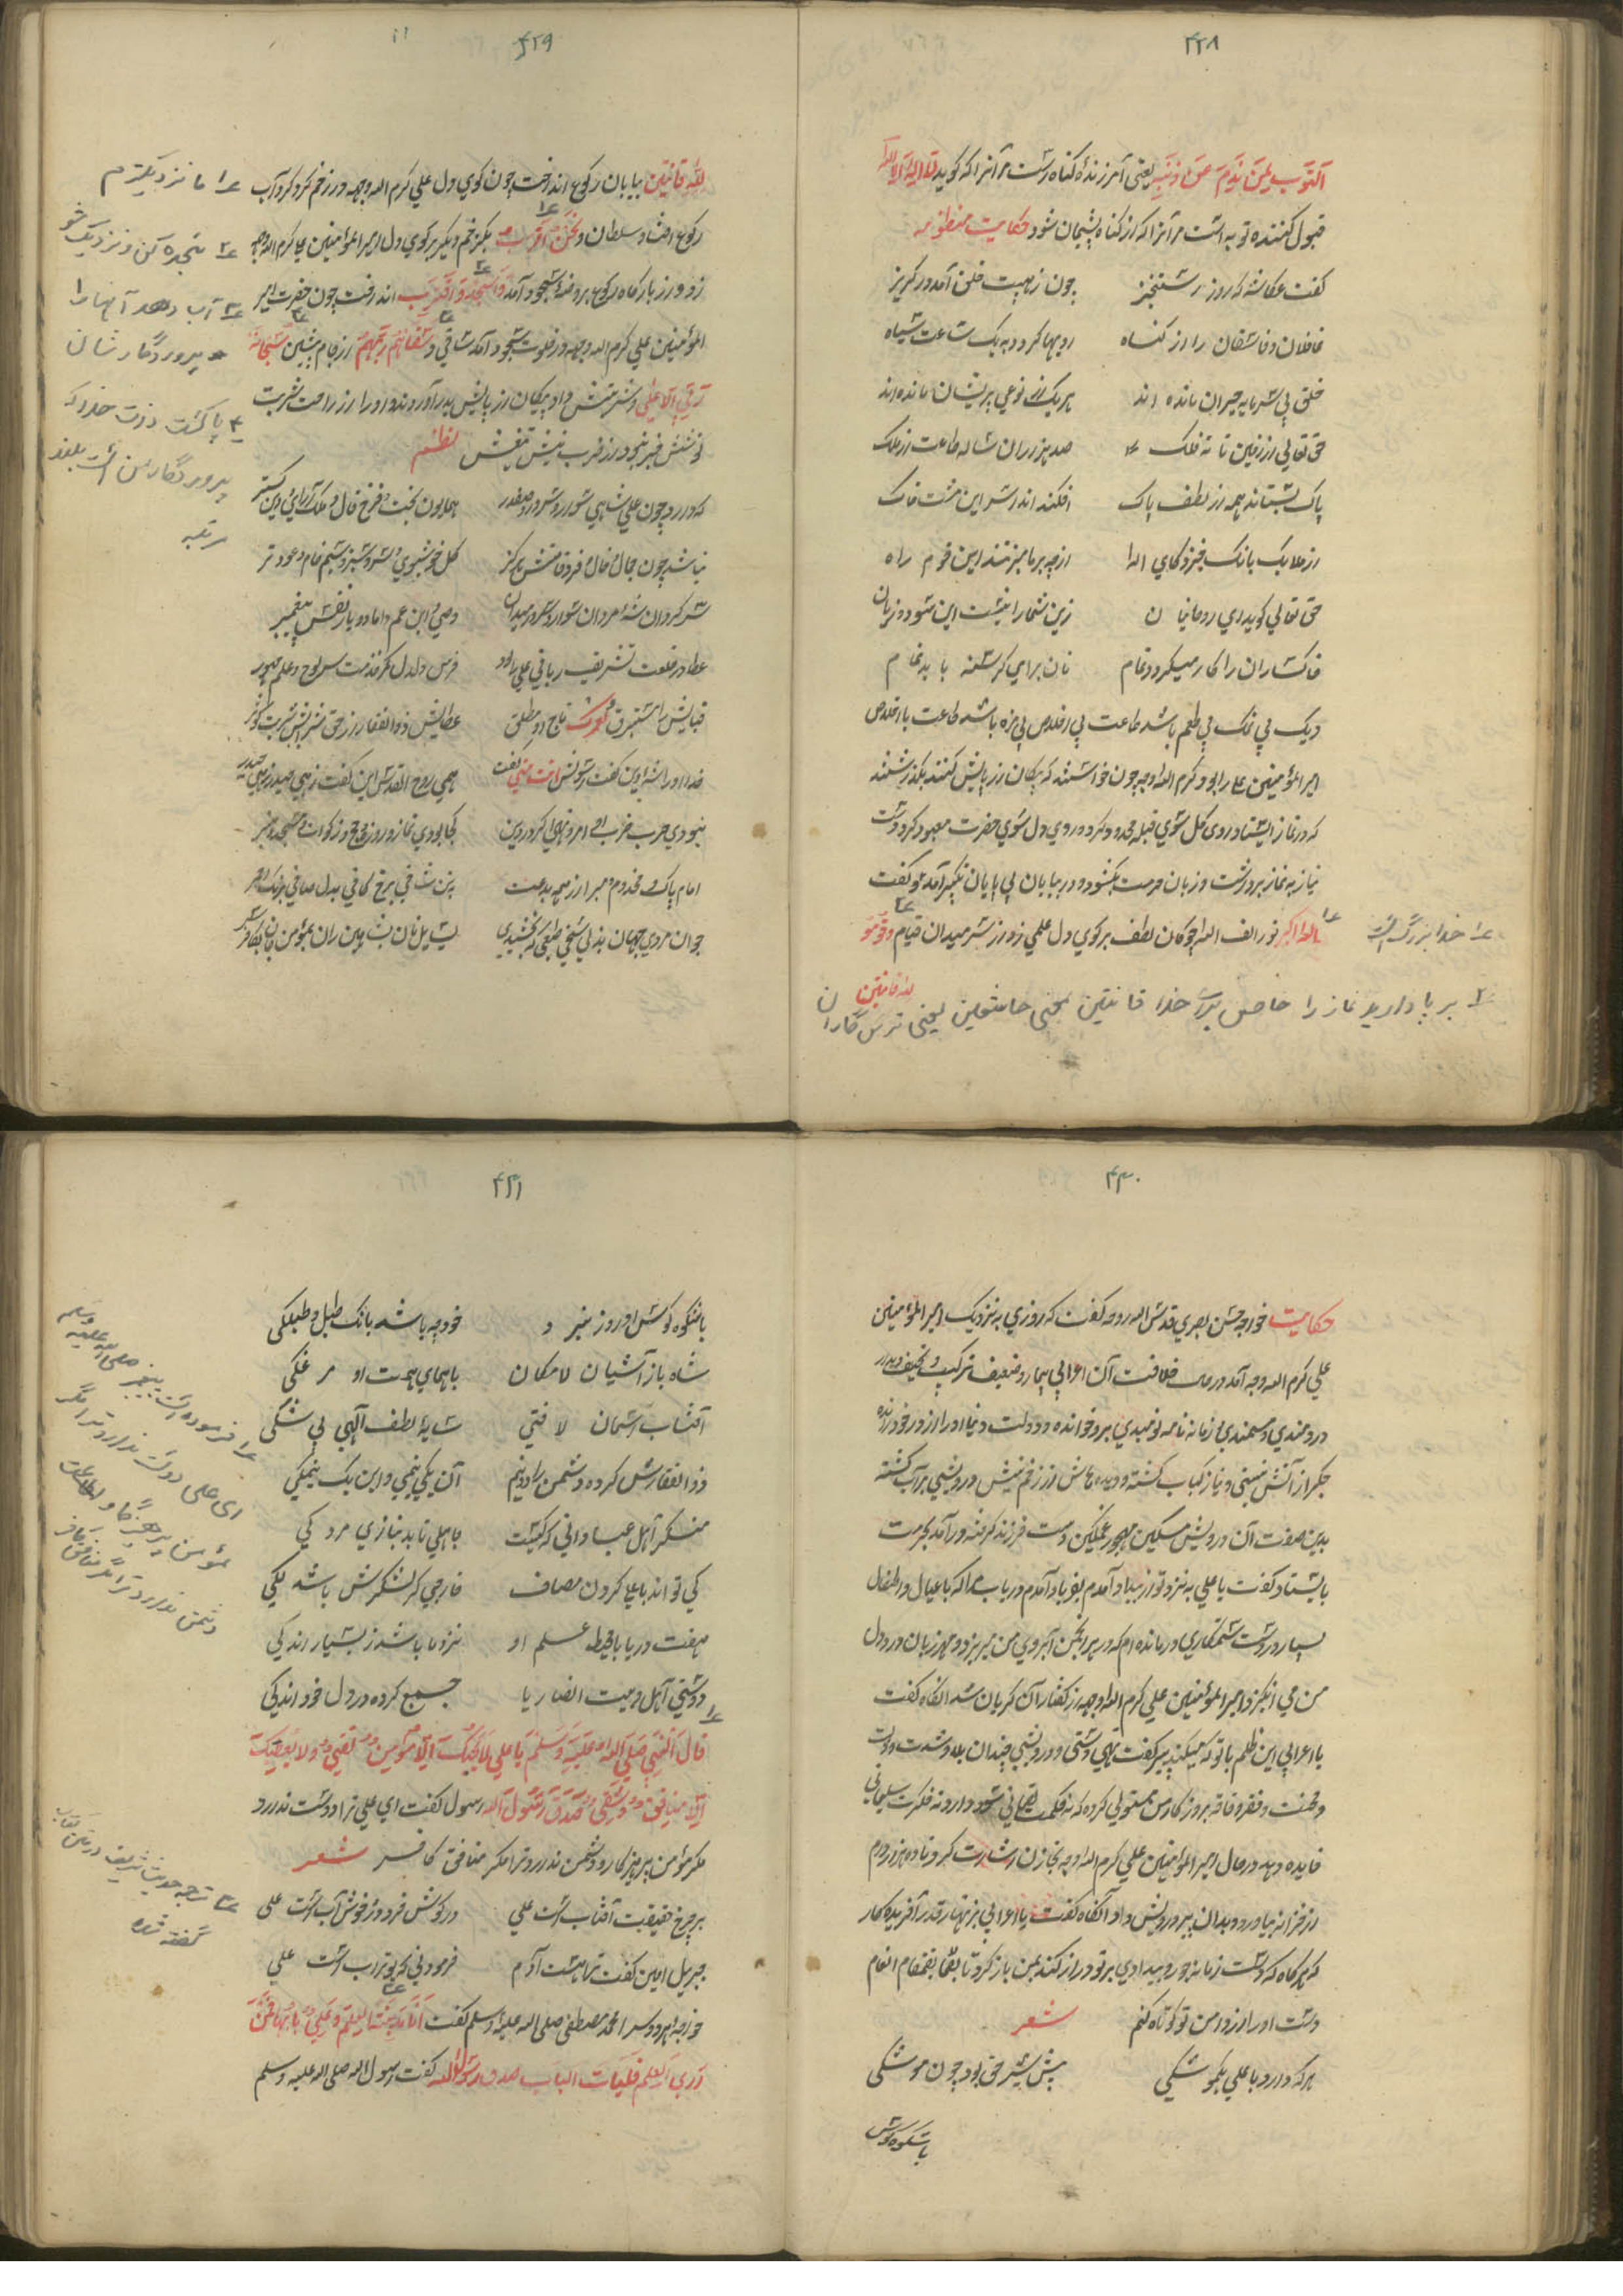 ۴۲۸
التوب لمن ندم من ذنبه یعنی آمرزندهٔ کناهست مر آنرا که کوید لا اله الا الله
قبول کننده توبه است مر آنرا که از کناه پشیمان شود حکایت منظومه
کفت عکاشه که روز رستخیز چون ز هیبت خلق آمد در کریز
غافلان و فاسقان را از کناه رویها کردد به یک ساعت سیاه
خلق بی سرمایه حیران مانده اند هر یک از نوعی پریشان مانده اند
حق تعالی از زمین تا نه فلک صد هزاران ساله طاعت از ملک
پاک بستاند همه از لطف پاک افکند اندر سر این مشت خاک
از ملایک بانک خیزد کای اله از چه بر ما میزنند این قوم راه
حق تعالی کوید ای روحانیان زین شما را نیست این سود و زیان
خاکساران را کار میکردد تمام نان برای کرسنه باید تمام
دیک بی نمک بی طعم باشد طاعت بی اخلاص بی مزه باشد طاعت با اخلاص
امیر المؤمنین علی را بود کرم الله وجه چون خواستند که پیکان از پایش کنند بکذاشتند
که در نماز ایستاد روی کل سوی قبله محدود کرده روی دل سوی حضرت معبود کرد دست
نیاز به نماز برداشت و زبان حرمت بکشود و در بیابان بی پایان تکبیر آمد کفت
الله اکبر از الف الله چوکان لطف بر کوی دل علی زد از سر میدان قیام وقوموا
لله قانتین
۱ خدا بزرگ است
۲ بر پا دارید نماز را خاص برای خدا قانتین بمعنی خاشعین یعنی ترس کاران
۴۲۹
لله قانتین بیابان رکوع انداخت چون کوی دل علی کرم الله وجهه در زخم کرد کرد آب
رکوع افتاد سلطان و نحن اقرب بیک زخم دیکر بر کوی دل امیر المؤمنین علی کرم الله وجه
زد و از بارکاه رکوع بروضهٔ سجود آمد واسجد واقترب اندر رفت چون حضرت امیر
المؤمنین علی کرم الله وجهه در خلوت سجود آمد ساقی وسقاهم ربهم از جام پیشین سبحان
ربی الاعلی شربتش داد پیکان از پایش بدر آوردند او را از راحت شربت
نوشش خبر نبود از ضرب نیش تیغش نظم
که دارد چون علی شاهی سوار و سرور و صفدر همایون بخت و فرخ فال و ملک آرای و دین کستر
نباشد چون جمال و خال و فر و قامتش هرکز کل خوشبوی و سرو سبز و سیم خام و عود تر
سر کردان شه مردان سوار و سرور میدان وصی و ابن عم و داماد و یار نفس پیغمبر
عطا در خلعت تشریف ربانی علی را بود فرس دلدل کمر خدمت سلاح و علم
قبایش استبرق و کمرش تاج او مطلق عطایش ذو الفقار از حق شرابش شربت کوثر
خدا او را شه دین کفت رسولش انت منی کفت همی روح القدس این کفت زهی حیدر زهی حیدر
نبودی حرب ضرب او امر و نهی اکر در دین کجا بودی نماز و روزه و حج و زکوات و مسجد و منبر
امام پاک و مخدوم مبرا از همه بدعت
جوان مردی جهان بذلی سخی طبعی که بخشیدی
۱ ما نزدیکتریم
۲ سجده کن و نزدیک شو
۳ آب دهد آنها را پروردگار شان
۴ پاکست ذات خدا که پروردگار من است بلند مرتبه
۴۳۰
حکایت خواجه حسن بصری قدس الله روحه کفت که روزی به نزدیک امیر المؤمنین
علی کرم الله وجه آمد در حالت خلافت آن اعرابی بیمار و ضعیف ترکیب و نحیف و بیمار
دردمندی و مستمندی زمانه نامه نومیدی برو خوانده و دولت دنیا او را از در خود رانده
جکر از آتش نیستی و نیاز کباب کشته و دیده هاش از زخم نیش درویشی پر آب کشته
بدین صفت آن درویش مسکین مهجور غمکین دست فرزند کرفته در آمد بحرمت
بایستاد کفت یا علی به نزد تو از بیداد آمدم بفریاد آمدم دریاب مرا که با عیال و اطفال
بسیار در دست ستمکاری درمانده ام که در هر انجمن آبروی من میریزد و مهر زبان در دل
من می انکیزد امیر المؤمنین علی کرم الله وجه از کفتار آن کریان شد آنکاه کفت
یا اعرابی این ظلم با تو که میکند پیر کفت تهی دستی و درویشی چندان بلا و شدت و ذلت
و محنت و فقر و فاقه بر روزکار من مستولی کرده که نه حکمت لقمانی سود دارد نه فکرت سلیمانی
فایده دهد در حال امیر المؤمنین علی کرم الله وجه بخازن اشارت کرد تا ده هزار درم
از خزانه بیاورد و بدان پیر درویش داد آنکاه کفت یا اعرابی زنهار بقدر آفریده کار
که هر کاه که دست زمانه جور و بیدادی بر تو دراز کند بمن باز کرد تا بصمصام انعام
دست او را از دامن تو کوتاه کنم شعر
هر که دارد با علی یکمو شکی پیش شیر حق بود چون موشکی
باشکوه کوس
۴۳۱
باشکوه کوس او روز نبرد خود چه باشد بانک طبل و طبلکی
شاه باز آشیان لامکان با همای همت او مرغکی
آفتاب آسمان لا فتی سایهٔ لطف آلهی بی شکی
ذو الفقارش کرده دشمن را دو نیم آن یکی نیمی و این یک نیمکی
منکر آهل عبا دانی که کیست جاهلی نابه نیازی مردکی
کی تواند با علی کردن مصاف خارجی کر لشکرش باشد لکی
هفت دریا با محیط علم او نزد ما باشد ز بسیار اندکی
دوستی آهل بیت انصار یا جمع کرده در دل خود اندکی
قال النبی صلی الله علیه وسلم یا علی لا یحبک الا مؤمن تقی ولا یبغضک
الا منافق شقی صدق رسول الله رسول کفت ای علی ترا دوست ندارد
مکر مؤمن پرهیزکار و دشمن ندارد ترا مکر منافق کافر شعر
بر چرخ حقیقت آفتاب است علی در کوش خرد در خوش آب است علی
جبریل امین کفت تراهست آدم فرمود نبی که بو تراب است علی
خواجهٔ هر دو سرا محمد مصطفی صلی الله علیه وسلم کفت انا مدینة العلم وعلی بابها فمن
اراد العلم فلیات الباب صدق رسول الله کفت رسول الله صلی الله علیه وسلم
۱ فرموده است پیغمبر صلی الله علیه وسلم
ای علی دوست ندارد ترا مگر
مؤمن پرهیزگار و
دشمن ندارد ترا مگر منافق کافر
۲ ترجمه حدیث شریف در متن کتاب
گفته شده